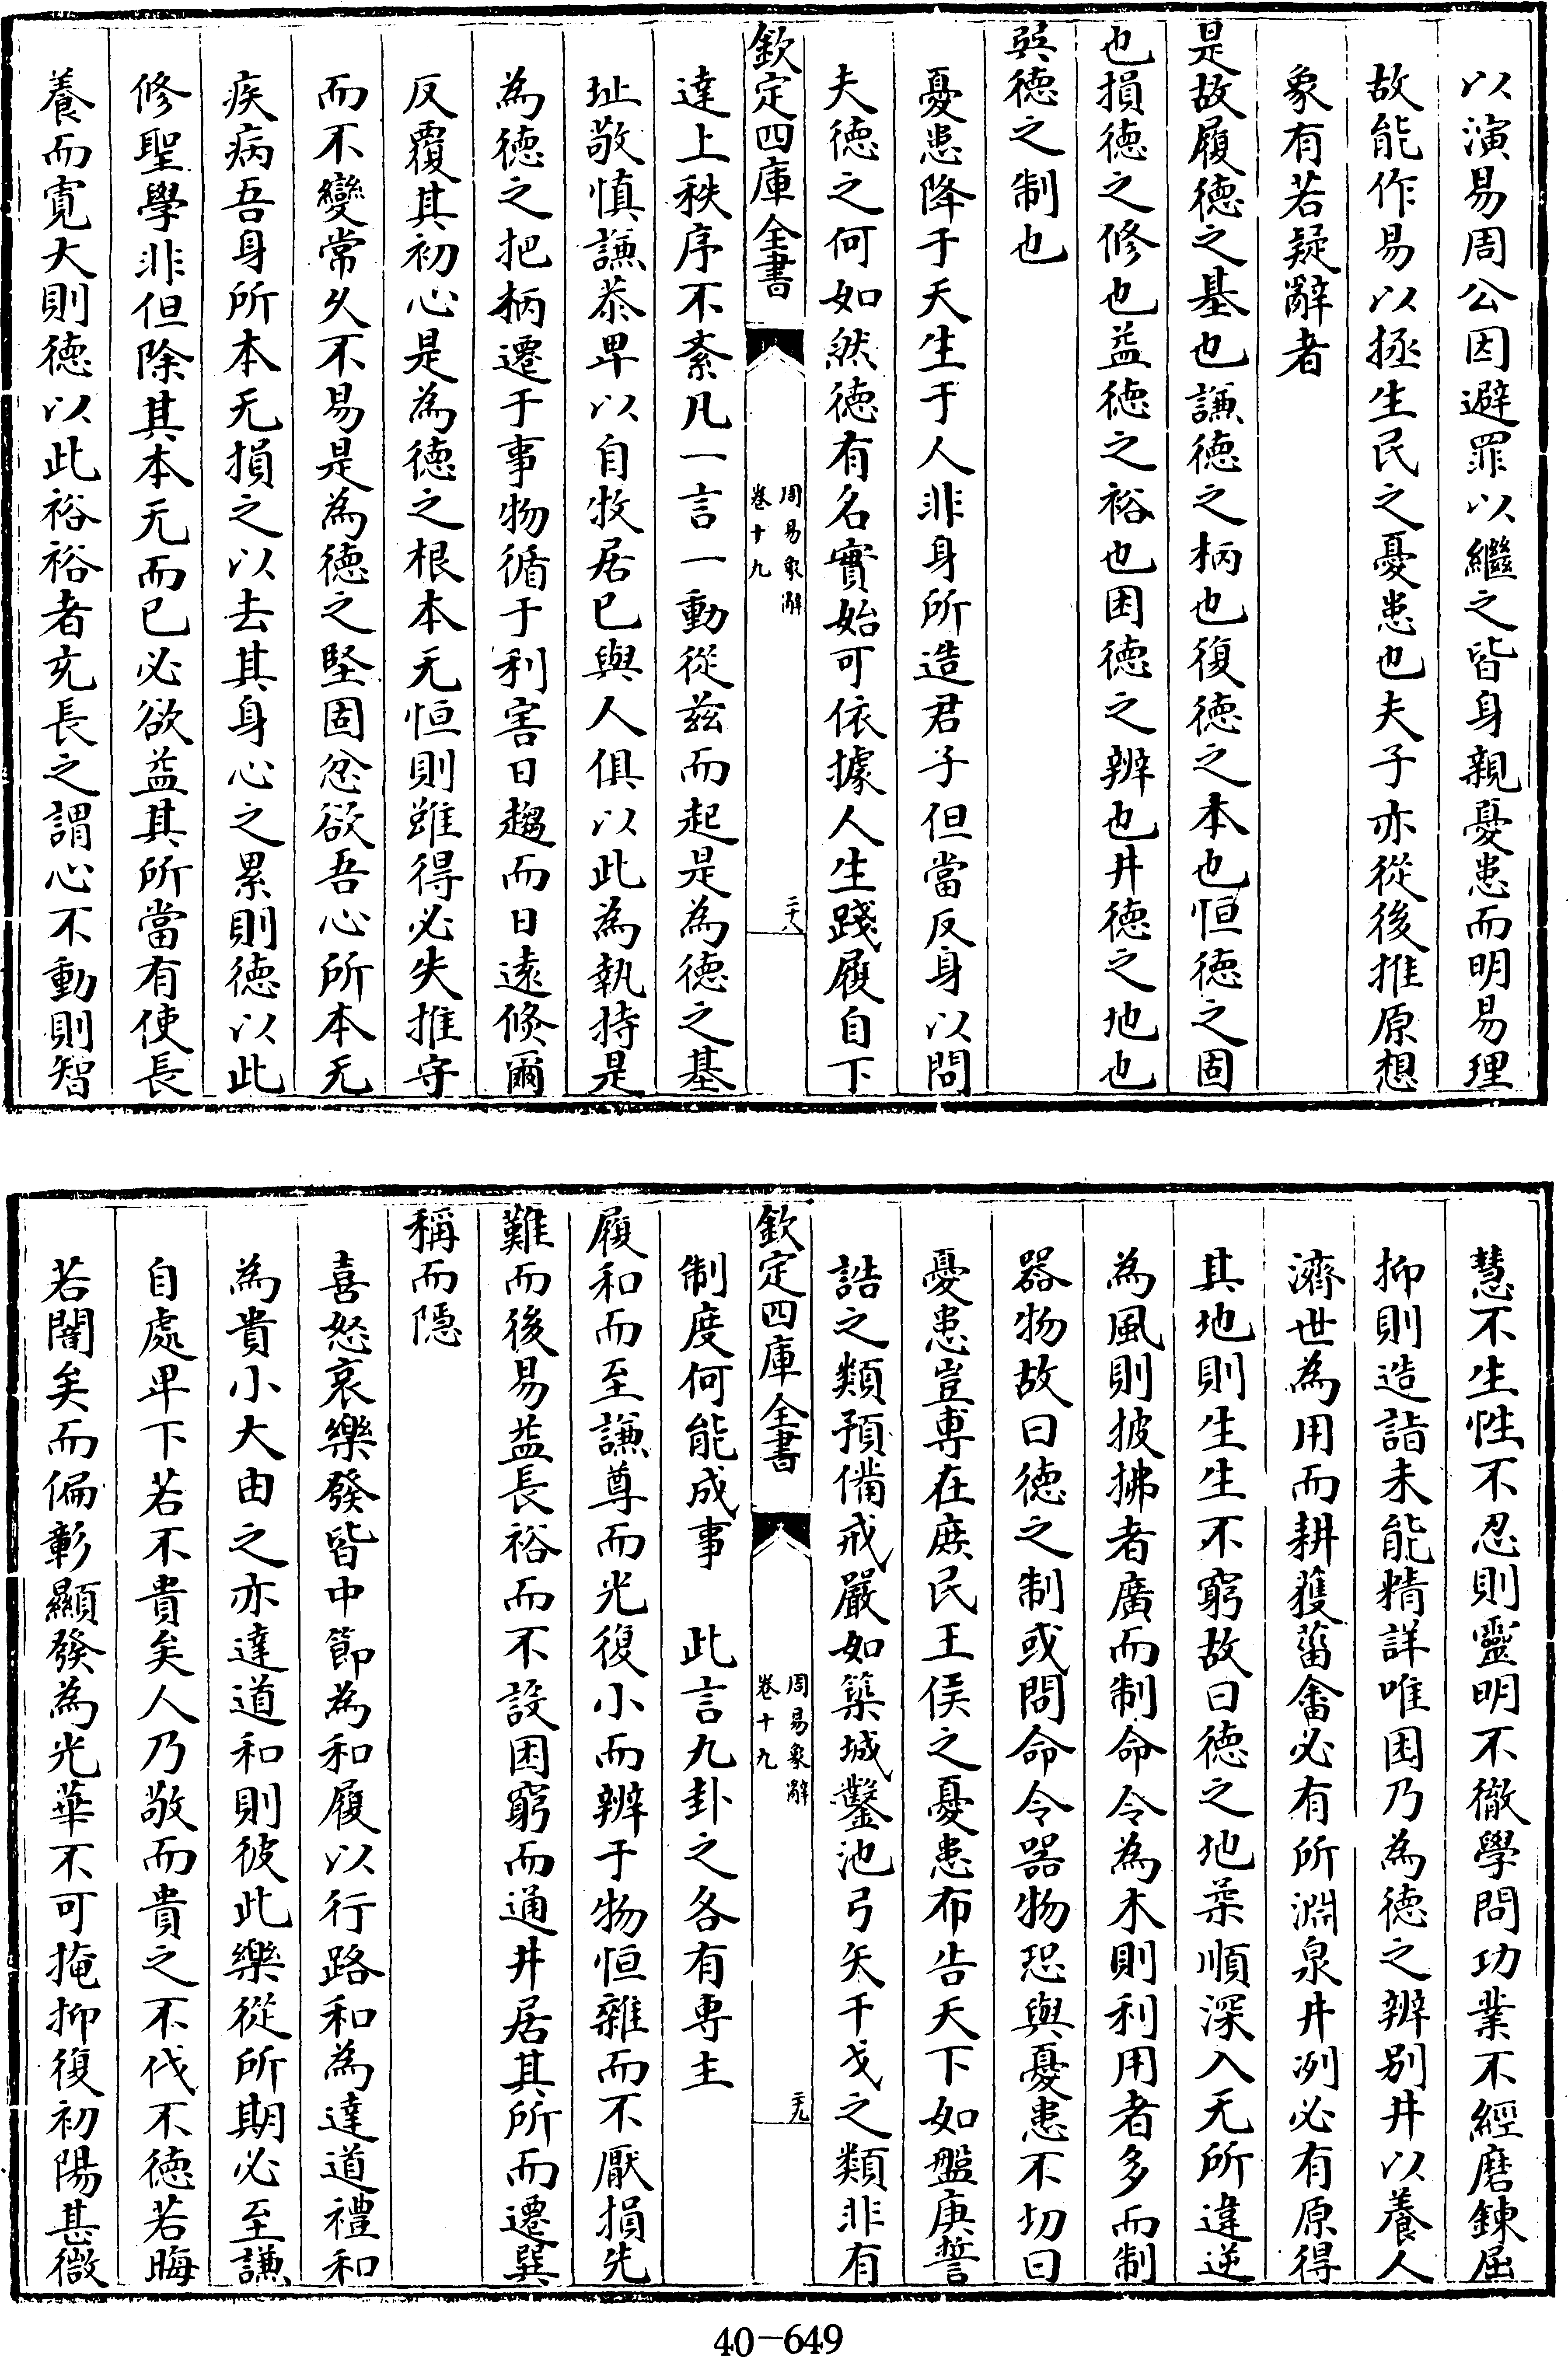 以演易周公因避罪以繼之皆身親憂患而明易理
故能作易以拯生民之憂患也夫子亦從後推原想
象有若疑辭者
是故履德之基也謙德之柄也復德之本也恒德之固
也損德之修也益德之裕也困德之辨也井德之地也
巽德之制也
憂患降于天生于人非身所造君子但當反身以問
夫德之何如然德有名實始可依據人生踐履自下
欽定四庫全書
周易象辭
卷十九
二十八
達上秩序不紊凡一言一動從兹而起是為德之基
址敬慎謙恭卑以自牧居已與人俱以此為執持是
為德之把柄遷于事物循于利害日趨而日遠倐爾
反覆其初心是為德之根本无恒則雖得必失推守
而不變常久不易是為德之堅固忿欲吾心所本无
疾病吾身所本无損之以去其身心之累則德以此
修聖學非但除其本无而已必欲益其所當有使長
養而寛大則德以此裕裕者充長之謂心不動則智
慧不生性不忍則靈明不徹學問功業不經磨鍊屈
抑則造詣未能精詳唯困乃為德之辨别井以養人
濟世為用而耕獲菑畬必有所淵泉井冽必有原得
其地則生生不窮故曰德之地巽順深入无所違逆
為風則披拂者廣而制命令為木則利用者多而制
器物故曰德之制或問命令器物恐與憂患不切曰
憂患豈専在庶民王侯之憂患布告天下如盤庚誓
誥之類預備戒嚴如築城鑿池弓矢干戈之類非有
欽定四庫全書
周易象辭
卷十九
二十九
制度何能成事　此言九卦之各有専主
履和而至謙尊而光復小而辨于物恒雜而不厭損先
難而後易益長裕而不設困窮而通井居其所而遷巽
稱而隱
喜怒哀樂發皆中節為和履以行路和為達道禮和
為貴小大由之亦達道和則彼此樂從所期必至謙
自處卑下若不貴矣人乃敬而貴之不伐不德若晦
若闇矣而偏彰顯發為光華不可掩抑復初陽甚微
40-649